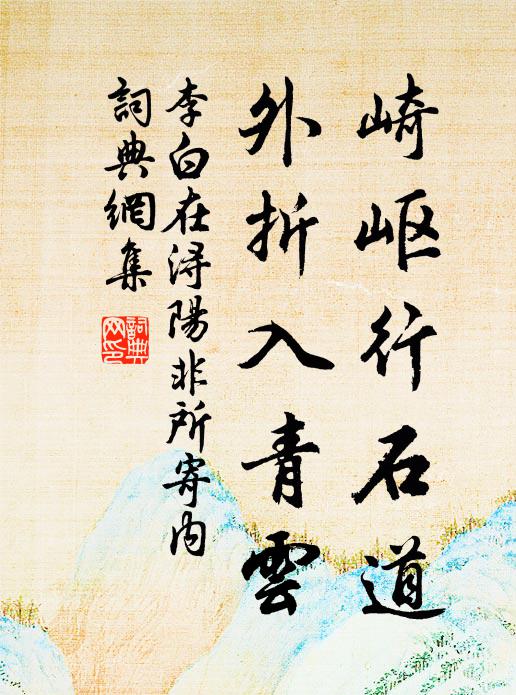 崎岖行石道
外折入青雲
李白在潯陽非所寄内
詞典網集
詞典
网印